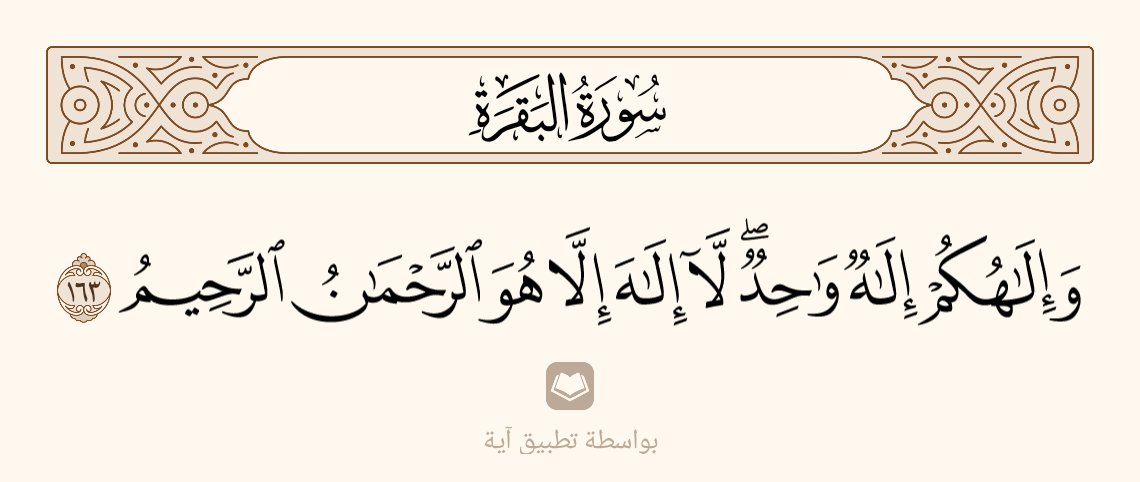 سُورَةُ البَقَرَةِ
وَإِلَـٰهُكُمْ إِلَـٰهٌ وَٰحِدٌ ۖ لَّآ إِلَـٰهَ إِلَّا هُوَ ٱلرَّحْمَـٰنُ ٱلرَّحِيمُ ١٦٣
بواسطة تطبيق آية